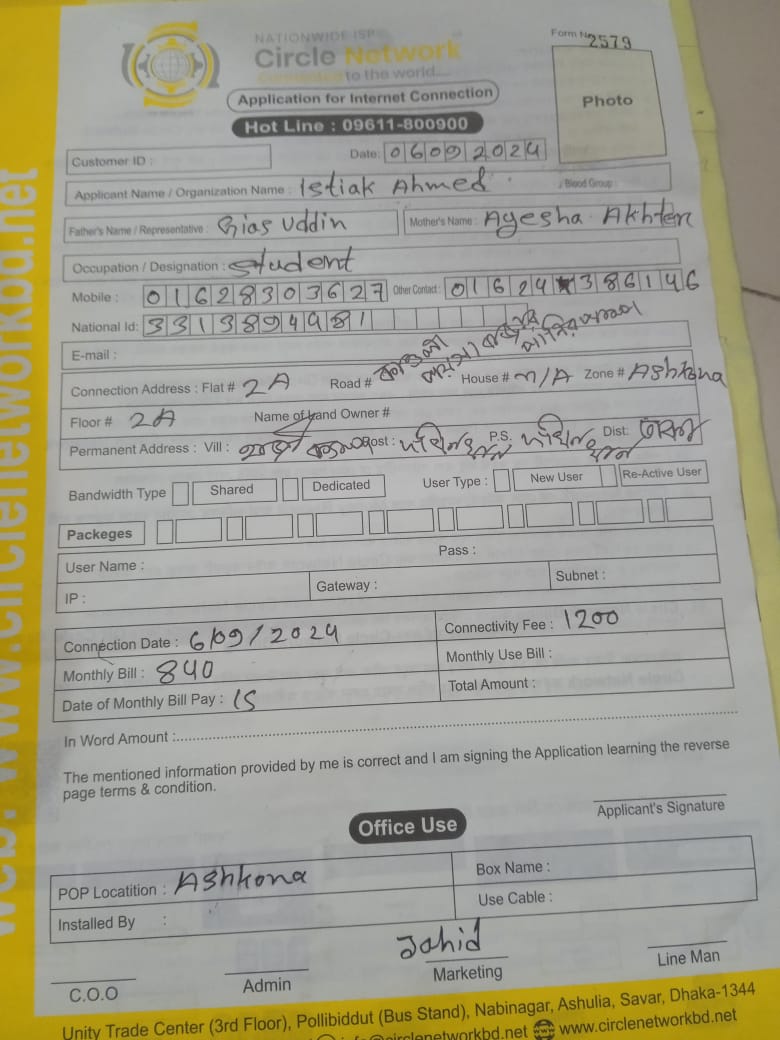 NATIONWIDE ISP
Circle Network
Connected to the world...
Form No 2579
Application for Internet Connection
Photo
Hot Line : 09611-800900
Customer ID :
Date: 06092024
Applicant Name / Organization Name : Istiak Ahmed Blood Group :
Father's Name / Representative : Gias Uddin Mother's Name : Ayesha Akhter
Occupation / Designation : Student
Mobile : 01628303627 Other Contact : 01624386146
National Id: 3313894981
E-mail :
Connection Address : Flat # 2A Road # House # N/A Zone # Ashkona
Floor # 2A Name of Land Owner #
Permanent Address : Vill : Post : P.S. Dist:
Bandwidth Type Shared Dedicated User Type : New User Re-Active User
Packeges
User Name : Pass :
IP : Gateway : Subnet :
Connection Date : 6/09/2024 Connectivity Fee : 1200
Monthly Bill : 840 Monthly Use Bill :
Date of Monthly Bill Pay : 15 Total Amount :
In Word Amount :
The mentioned information provided by me is correct and I am signing the Application learning the reverse
page terms & condition.
Applicant's Signature
Office Use
POP Locatition : Ashkona Box Name :
Installed By : Use Cable :
Jahid
C.O.O Admin Marketing Line Man
Unity Trade Center (3rd Floor), Pollibiddut (Bus Stand), Nabinagar, Ashulia, Savar, Dhaka-1344
info@circlenetworkbd.net www.circlenetworkbd.net
Web: www.circlenetworkbd.net